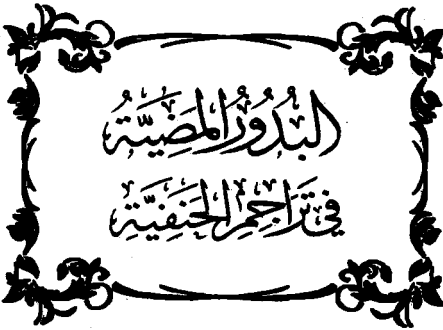 البُدُورُ المَضِيَّة
فِي تَرَاجِمِ الحَنَفِيَّةِ